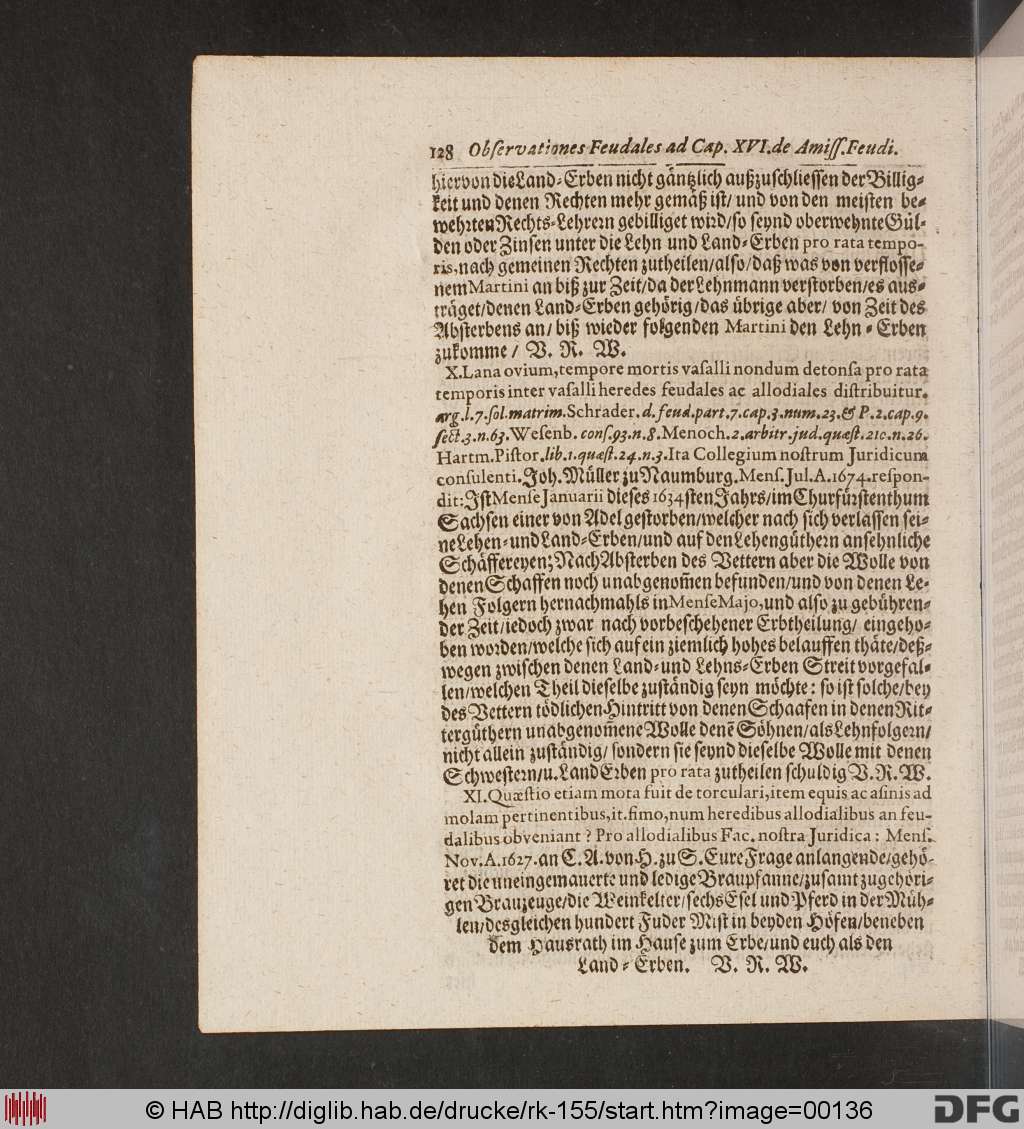 128 Observationes Feudales ad Cap. XVI. de Amiss. Feudi.
hiervon die Land-Erben nicht gäntzlich außzuschliessen der Billig-
keit und denen Rechten mehr gemäß ist/ und von den meisten be-
wehrten Rechts-Lehrern gebilliget wird/so seynd oberwehnte Gül-
den oder Zinsen unter die Lehn und Land-Erben pro rata tempo-
ris, nach gemeinen Rechten zutheilen/also/daß was von verflosse-
nem Martini an biß zur Zeit/da der Lehnmann verstorben/es aus-
träget/denen Land-Erben gehörig/das übrige aber/ von Zeit des
Absterbens an/ biß wieder folgenden Martini den Lehn-Erben
zukomme/ V. R. W.
X. Lana ovium, tempore mortis vasalli nondum detonsa pro rata
temporis inter vasalli heredes feudales ac allodiales distribuitur.
arg.l.7.sol.matrim. Schrader. d. feud.part.7.cap.3.num.23.& P.2.cap.9.
sect.3.n.63. Wesenb. cons.93.n.8. Menoch.2.arbitr.jud.quæst.210.n.26.
Hartm. Pistor. lib.1.quæst.24.n.3. Ita Collegium nostrum Juridicum
consulenti. Joh. Müller zu Naumburg. Mens. Jul. A. 1674. respon-
dit: Ist Mense Januarii dieses 1634sten Jahrs/im Churfürstenthum
Sachsen einer von Adel gestorben/welcher nach sich verlassen sei-
ne Lehen-und Land-Erben/und auf den Lehengüthern ansehnliche
Schäffereyen; Nach Absterben des Vettern aber die Wolle von
denen Schaffen noch unabgenom̃en befunden/und von denen Le-
hen Folgern hernachmahls in Mense Majo, und also zu gebühren-
der Zeit/iedoch zwar nach vorbeschehener Erbtheilung/ eingeho-
ben worden/welche sich auf ein ziemlich hohes belauffen thäte/deß-
wegen zwischen denen Land-und Lehns-Erben Streit vorgefal-
len/welchen Theil dieselbe zuständig seyn möchte: so ist solche/bey
des Vettern tödlichen Hintritt von denen Schaafen in denen Rit-
tergüthern unabgenom̃ene Wolle denẽ Söhnen/als Lehnfolgern/
nicht allein zuständig/ sondern sie seynd dieselbe Wolle mit denen
Schwestern/u. Land Erben pro rata zutheilen schuldig V. R. W.
XI. Quæstio etiam mota fuit de torculari, item equis ac asinis ad
molam pertinentibus, it. fimo, num heredibus allodialibus an feu-
dalibus obveniant? Pro allodialibus Fac. nostra Juridica: Mens.
Nov. A. 1627. an C. A. von H. zu S. Eure Frage anlangende/gehö-
ret die uneingemauerte und ledige Braupfanne/zusamt zugehöri-
gen Brauzeuge/die Weinkelter/sechs Esel und Pferd in der Müh-
len/desgleichen hundert Fuder Mist in beyden Höfen/beneben
dem Hausrath im Hause zum Erbe/und euch als den
Land-Erben. V. R. W.
© HAB http://diglib.hab.de/drucke/rk-155/start.htm?image=00136
DFG